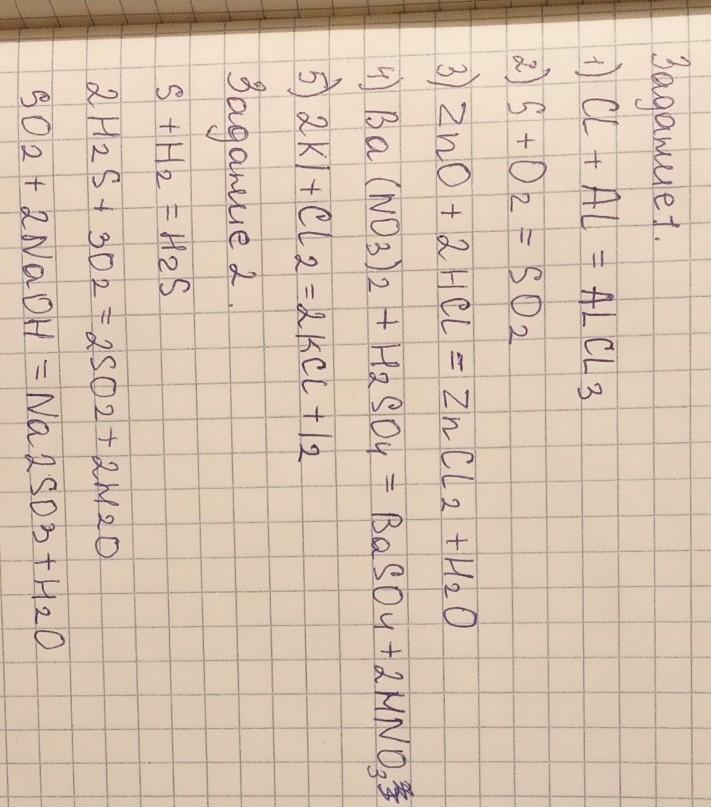 Задание 1.
1) Cl + Al = AlCl3
2) S + O2 = SO2
3) ZnO + 2HCl = ZnCl2 + H2O
4) Ba(NO3)2 + H2SO4 = BaSO4 + 2HNO3
5) 2KI + Cl2 = 2KCl + I2
Задание 2.
S + H2 = H2S
2H2S + 3O2 = 2SO2 + 2H2O
SO2 + 2NaOH = Na2SO3 + H2O